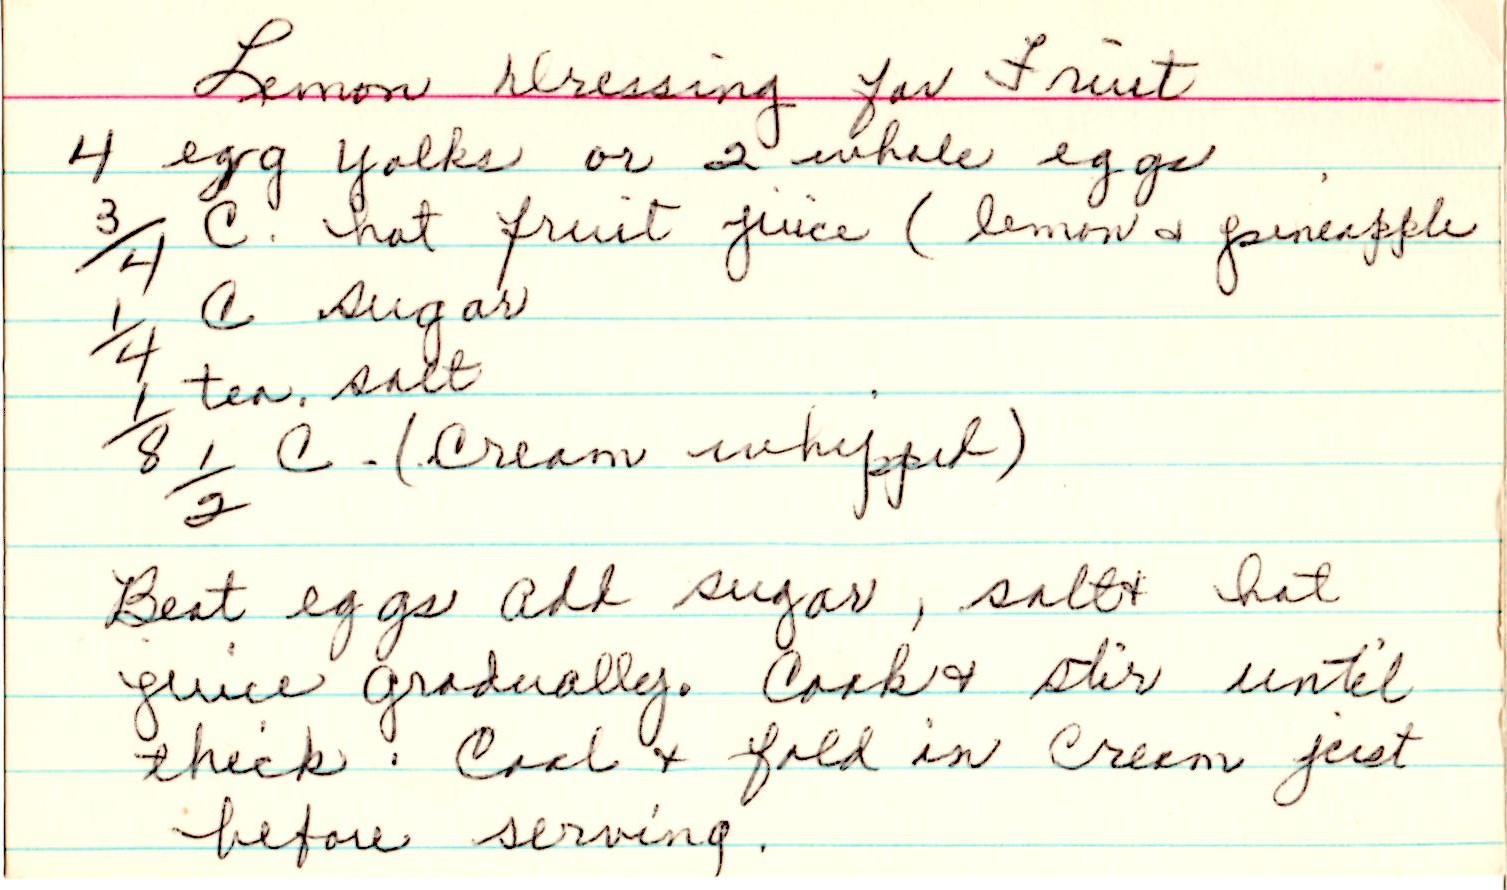 Lemon Dressing for Fruit
4 egg yolks or 2 whole eggs
3/4 C. hot fruit juice (lemon & pineapple
1/4 C sugar
1/8 tea. salt
1/2 C. (Cream whipped)
Beat eggs add sugar, salt & hot
juice gradually. Cook & stir until
thick. Cool & fold in Cream just
before serving.